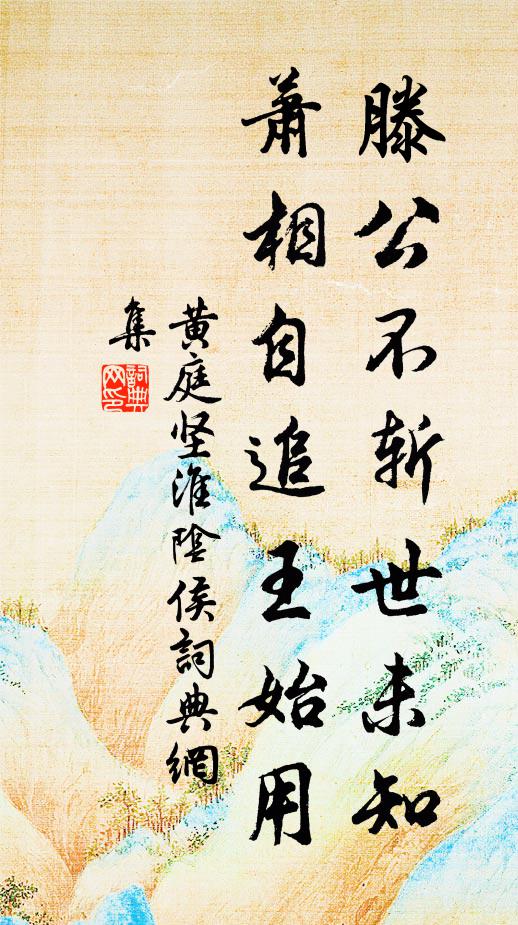 滕公不斩世未知
萧相自追王始用
黄庭坚淮陰侯詞典網
集
詞典網印